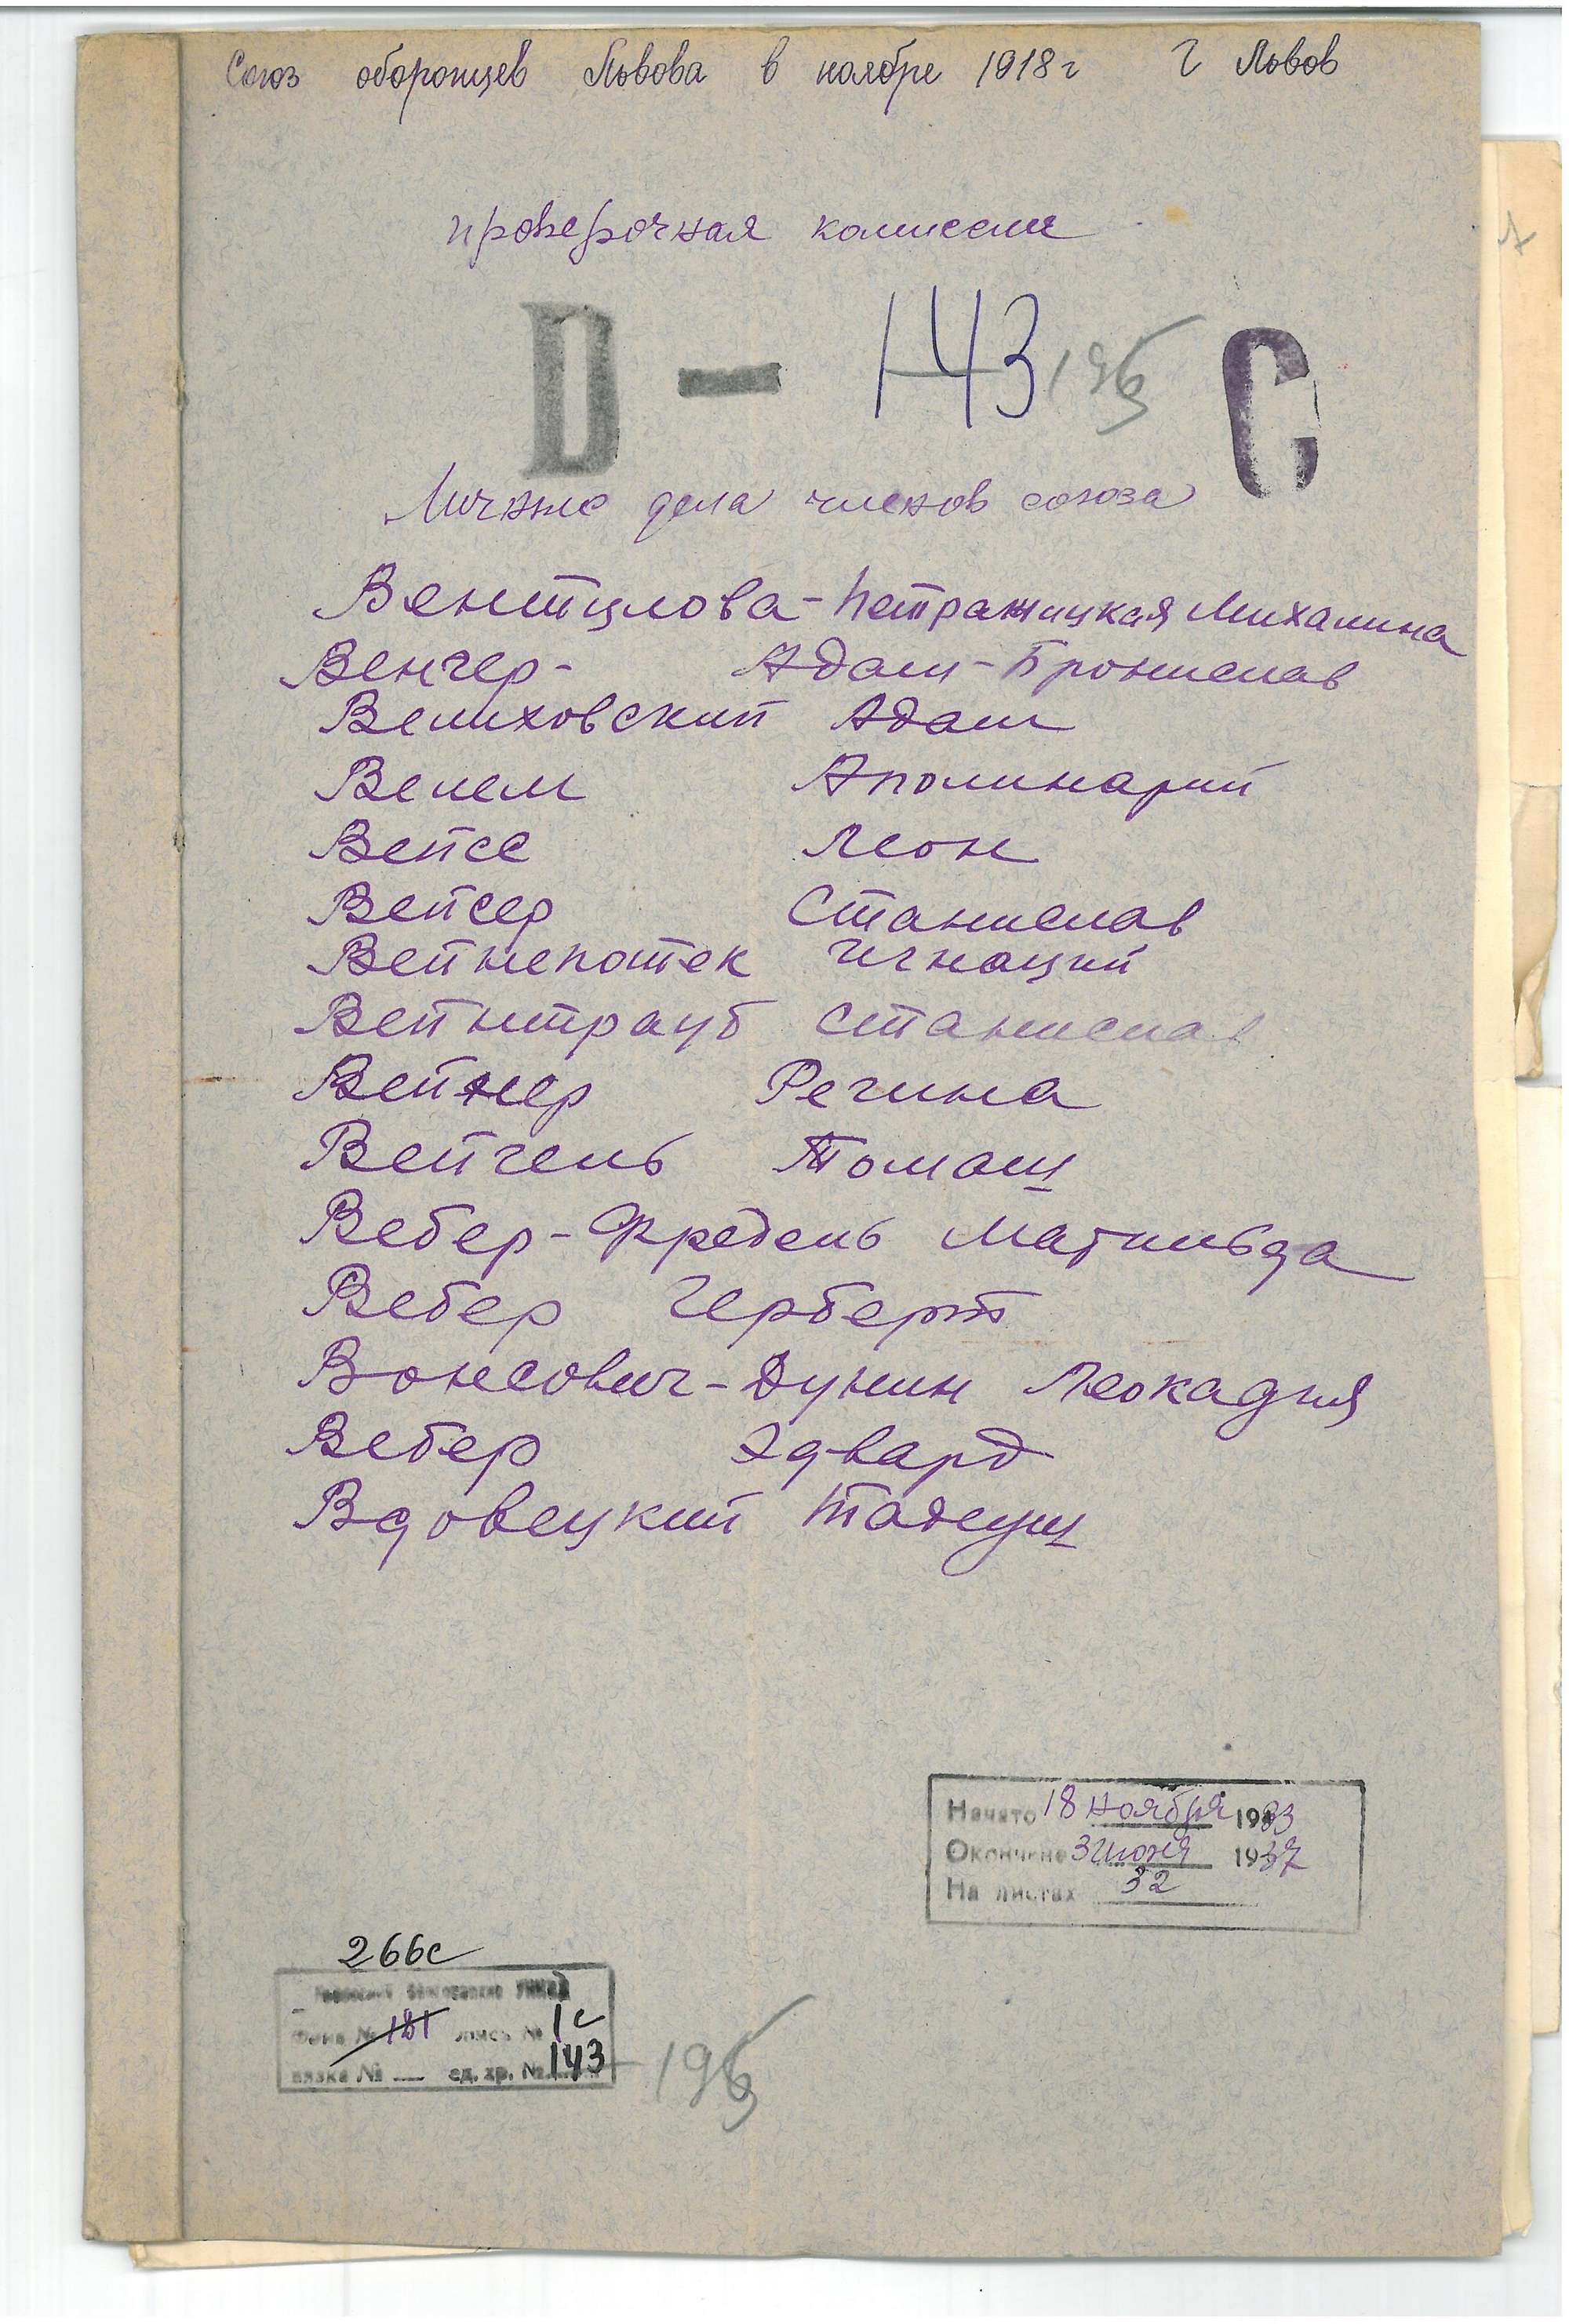 Союз оборонцев Львова в ноябре 1918г г Львов
проверочная комиссия
D — 143 196 C
Личные дела членов союза
Вентцлова-Петражицкая Михалина
Венгер- Адам-Бронислав
Велиховский Адам
Велем Аполинарий
Вейсс Леон
Вейсер Станислав
Вейнепотек Игнаций
Вейнтрауб Станислав
Вейнер Регина
Вейгель Томаш
Вебер-Фредель Матильда
Вебер Герберт
Вонсович-Дунин Леокадия
Вебер Эдвард
Вдовецкий Тадеуш
Начато 18 ноября 1933
Окончено 3 июня 1937
На листах 32
266с
Фонд № 181 опись № 1с
вязка № — ед. хр. № 143
196